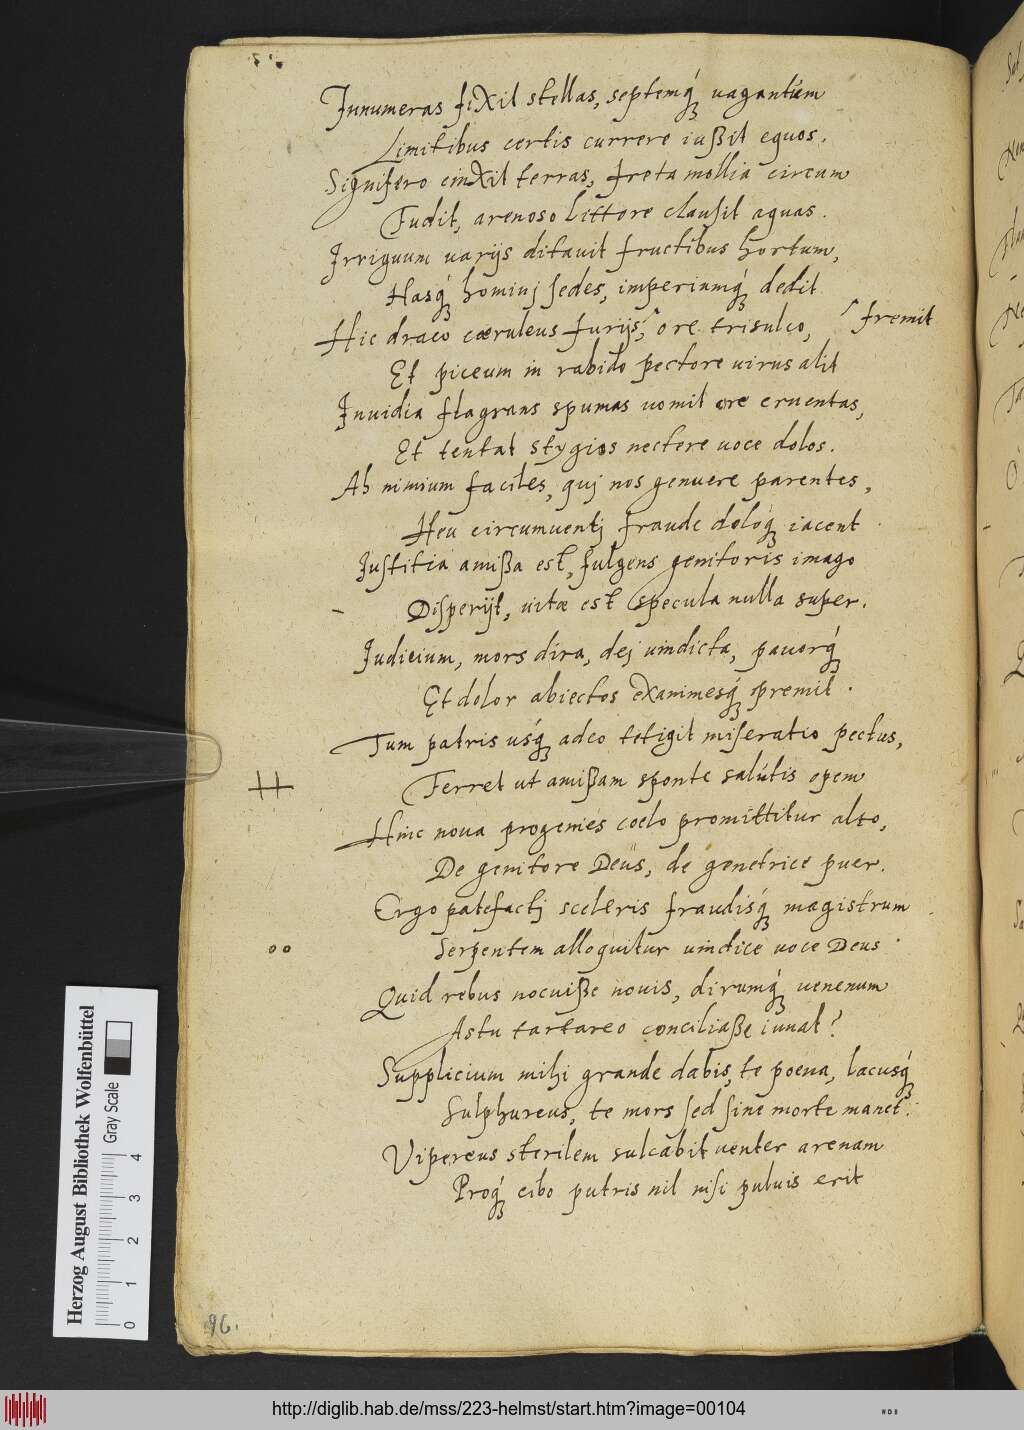 Innumeras fiXit stellas, septemq́ꝫ uagantûm
Limitibus certis currere iußit equos.
Signifero cinXit terras, freta mollia circum
Fudit, arenoso littore clausit aquas.
Irriguum uarijs ditauit fructibus hortum,
Hasq́ꝫ hominj sedes, imperiumq́ꝫ dedit
Hic draco cæruleus furijs, ore trisulco, fremit
Et piceum in rabido pectore uirus alit
Inuidia flagrans spumas uomit ore cruentas,
Et tentat stygios nectere uoce dolos.
Ah nimium faciles, quj nos genuere parentes,
Heu circumuentj fraude dolóq́ꝫ iacent
Justitia amißa est, fulgens genitoris imago
Disperijt, uitæ est specula nulla super.
Judicium, mors dira, dej uindicta, pauorq́ꝫ
Et dolor abiectos eXanimesq́ꝫ premit.
Tum patris usq́ꝫ adeo tetigit miseratio pectus,
Ferret ut amißam sponte salútis opem
Hinc noua progenies coelo promittitur alto,
De genitore Deus, de genetrice puer.
Ergo patefactj sceleris fraudisq́ꝫ magistrum
Serpentem alloquitur uindice uoce Deus.
Quid rebus nocuiße nouis, dirumq́ꝫ uenenum
Astu tartareo conciliaße iuuat?
Supplicium mihi grande dabis, te poena, lacusq́ꝫ
Sulphureus, te mors sed sine morte manet.
Vipereus sterilem sulcabit uenter arenam
Proq́ꝫ cibo putris nil nisi puluis erit
96.
Herzog August Bibliothek Wolfenbüttel
Gray Scale
0 1 2 3 4
http://diglib.hab.de/mss/223-helmst/start.htm?image=00104